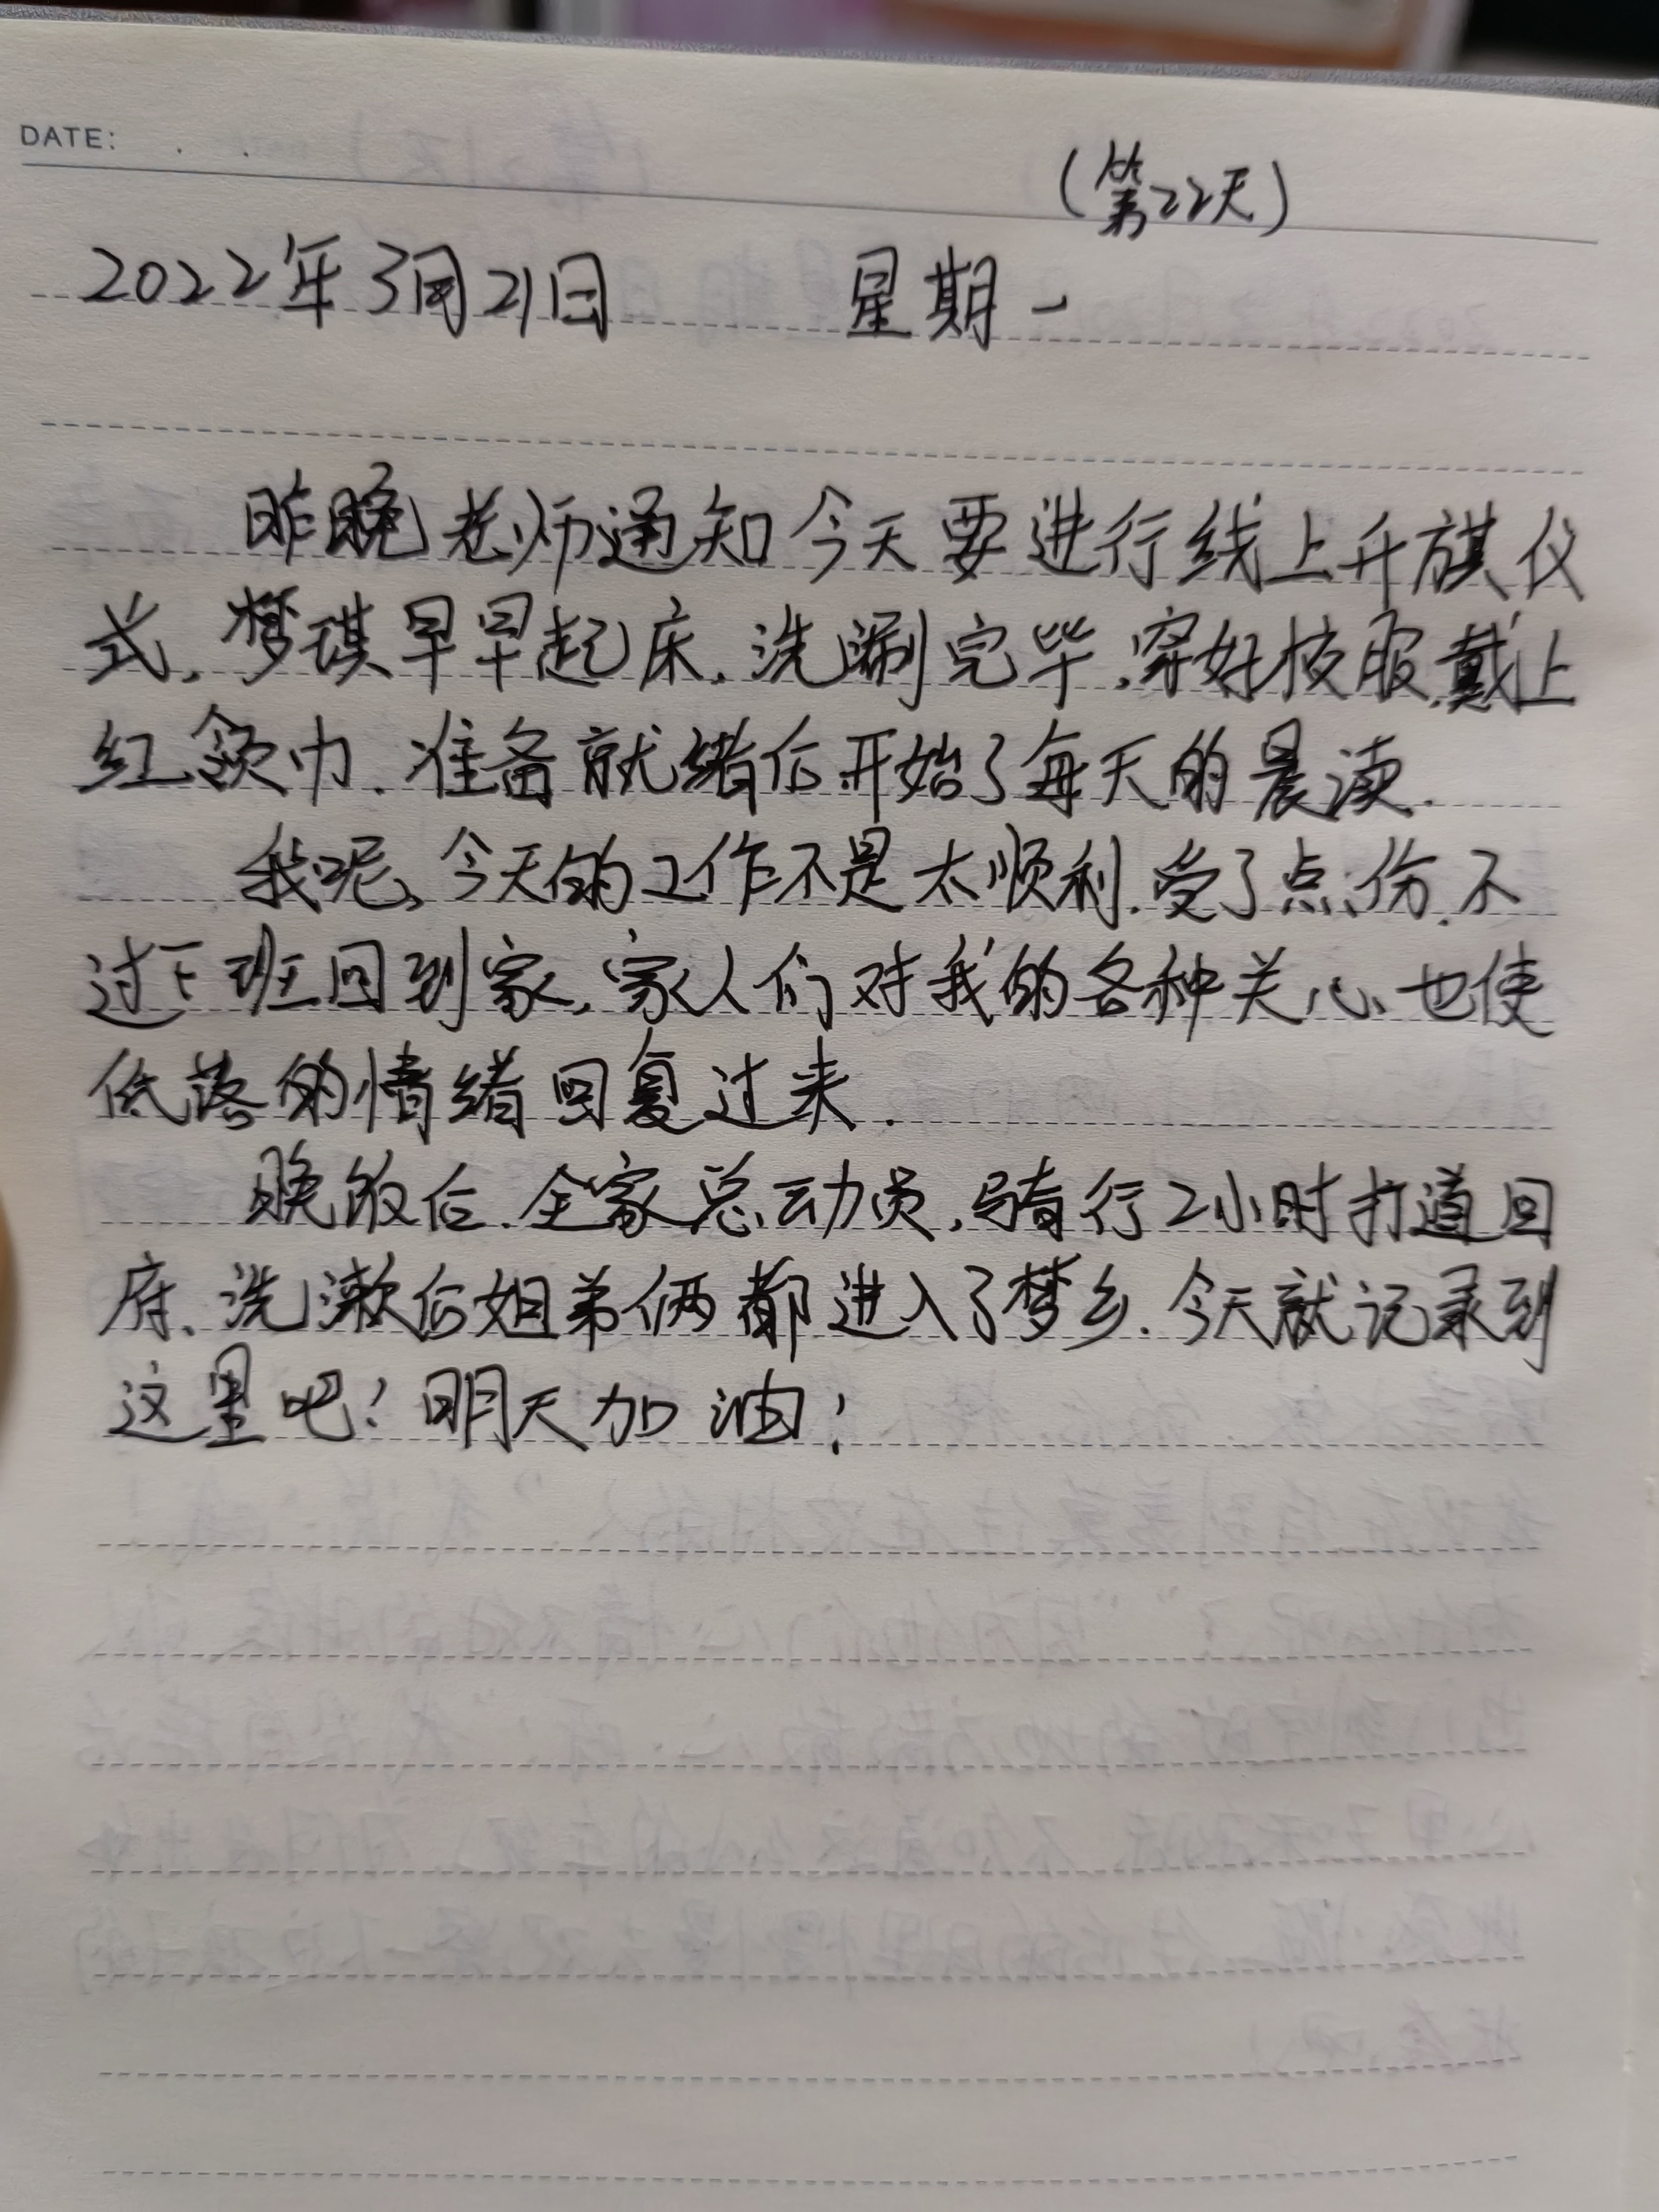 DATE: . .
(第22天)
2022年3月21日 星期一
昨晚老师通知今天要进行线上升旗仪
式,梦琪早早起床,洗涮完毕,穿好校服,戴上
红领巾,准备就绪后开始了每天的晨读.
我呢,今天的工作不是太顺利,受了点伤,不
过下班回到家,家人们对我的各种关心,也使
低落的情绪回复过来.
晚饭后,全家总动员,骑行2小时打道回
府、洗漱后姐弟俩都进入了梦乡.今天就记录到
这里吧!明天加油!